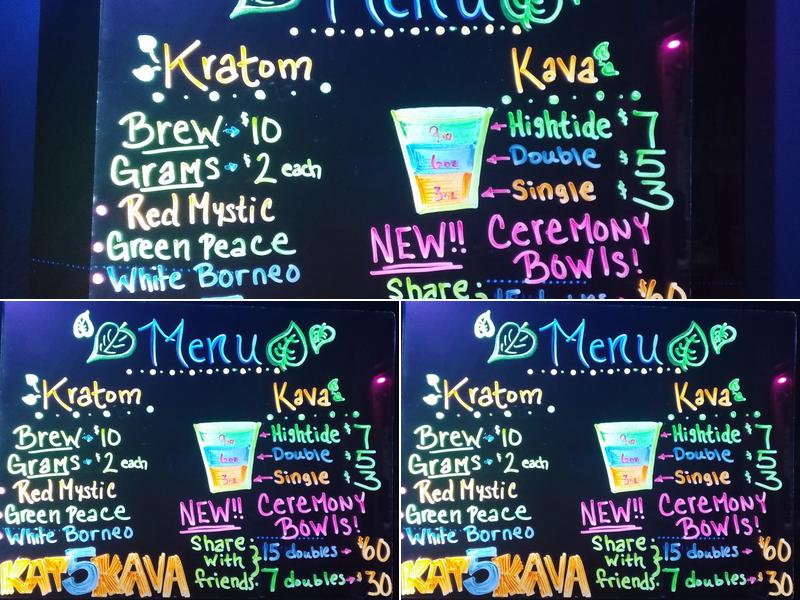 Menu
Kratom
Brew $10
Grams $2 each
Red Mystic
Green Peace
White Borneo
Kava
9oz
6oz
3oz
Hightide $7
Double $5
Single $3
NEW!! Ceremony Bowls!
Share
15 doubles $60
Menu
Kratom
Brew $10
Grams $2 each
Red Mystic
Green Peace
White Borneo
KAT5KAVA
Kava
9oz
6oz
3oz
Hightide $7
Double 5
Single 3
NEW!! Ceremony Bowls!
Share with friends.
15 doubles $60
7 doubles $30
Menu
Kratom
Brew $10
Grams $2 each
Red Mystic
Green Peace
White Borneo
KAT5KAVA
Kava
9oz
6oz
3oz
Hightide $7
Double 5
Single 3
NEW!! Ceremony Bowls!
Share with friends.
15 doubles $60
7 doubles $30